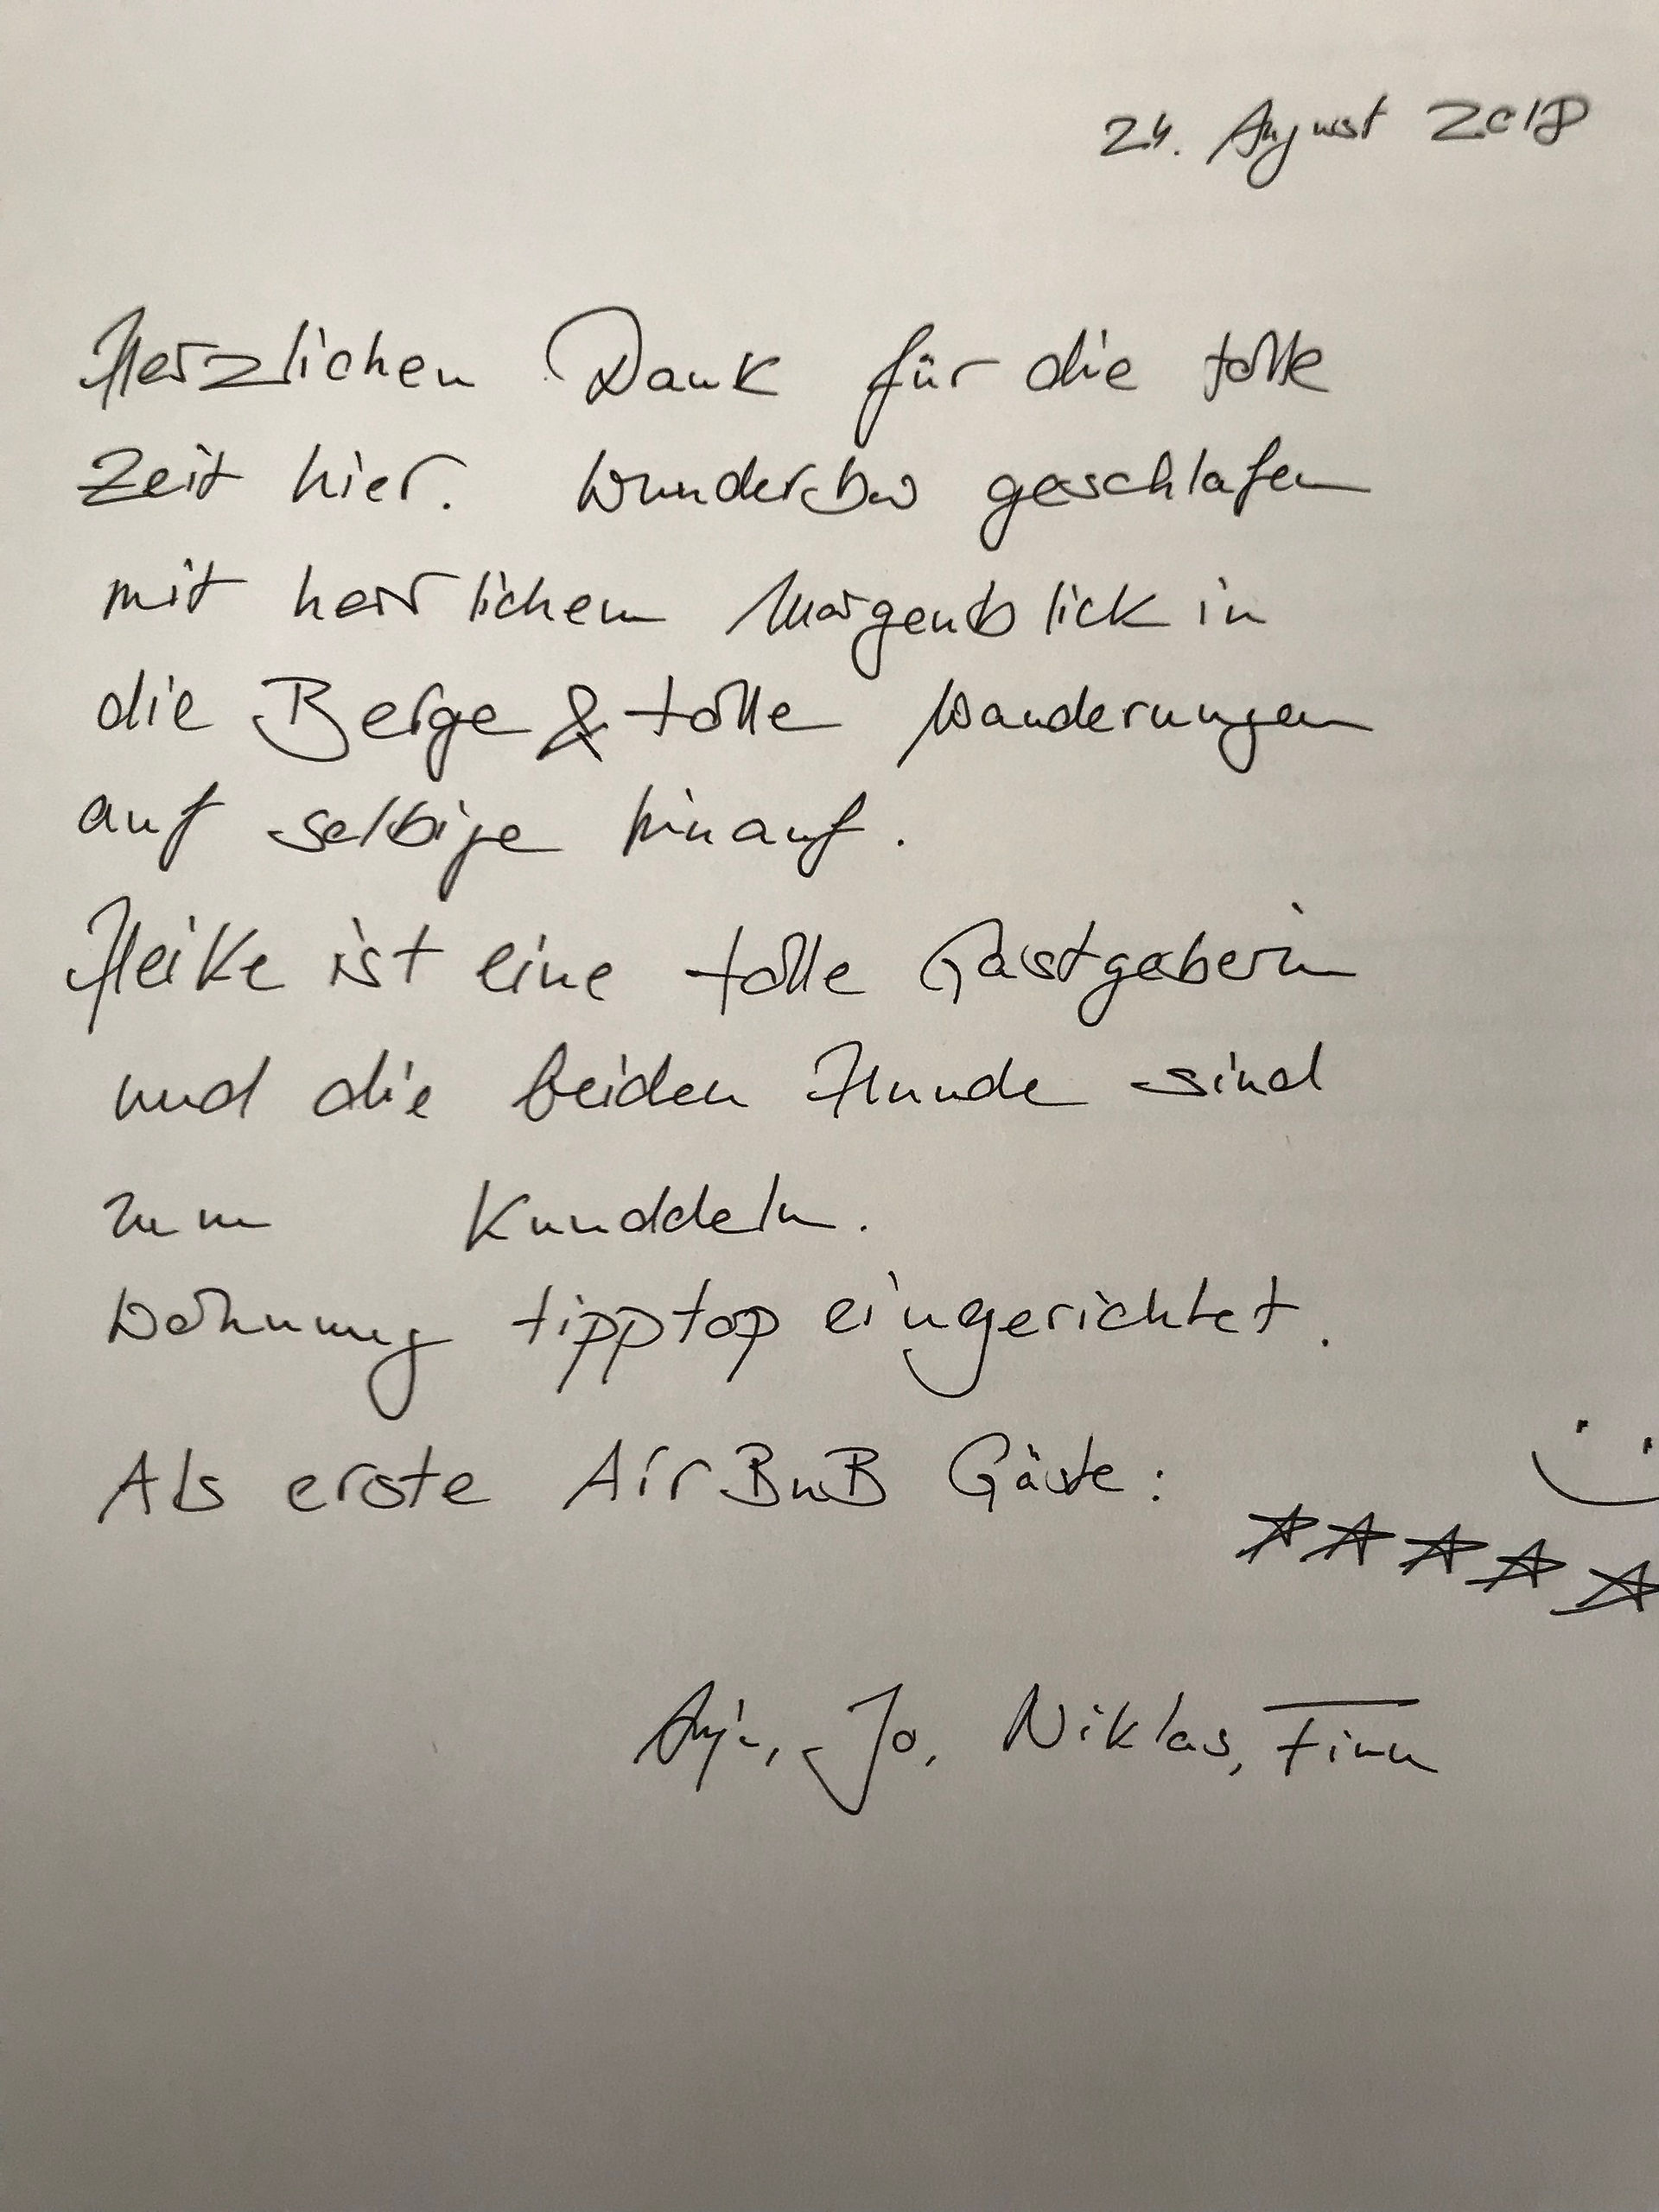 24. August 2018
Herzlichen Dank für die tolle
Zeit hier. Wunderbar geschlafen
mit herrlichem Morgenblick in
die Berge & tolle Wanderungen
auf selbige hinauf.
Heike ist eine tolle Gastgeberin
und die beiden Hunde sind
zum Knuddeln.
Wohnung tipptop eingerichtet.
Als erste AirBnB Gäste:
Jo, Niklas, Finn